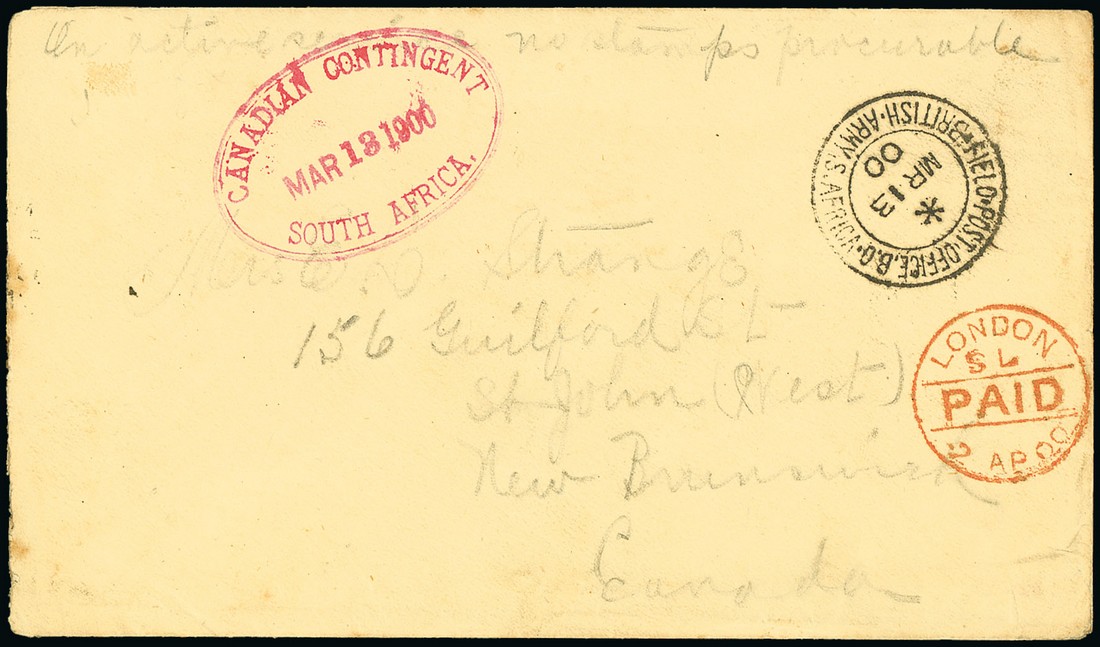 On active service no stamps procurable
CANADIAN CONTINGENT
MAR 13 1900
SOUTH AFRICA.
FIELD·POST·OFFICE.B.O·
BRITISH·ARMY.S.AFRICA
*
13
MR
00
Strange
156 Guilford St
St John (West)
New Brunswick
Canada
LONDON
S L
PAID
2 AP 00